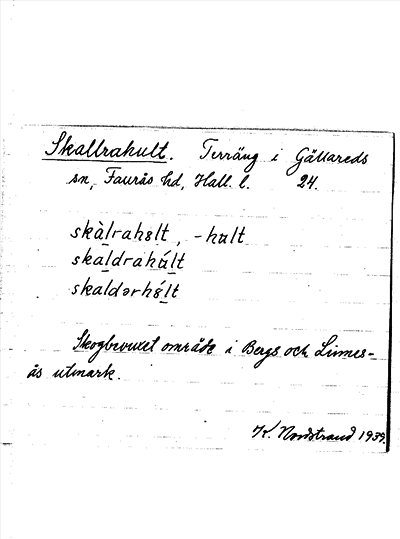 Skallrahult. Terräng i Gällareds
sn, Faurås hd, Hall. l. 24.
skàlrahɵlt, -hult
skaldrahúlt
skaldərhɵ́lt
Skogbevuxet område i Bergs och Linnes-
ås utmark.
K. Nordstrand 1939.